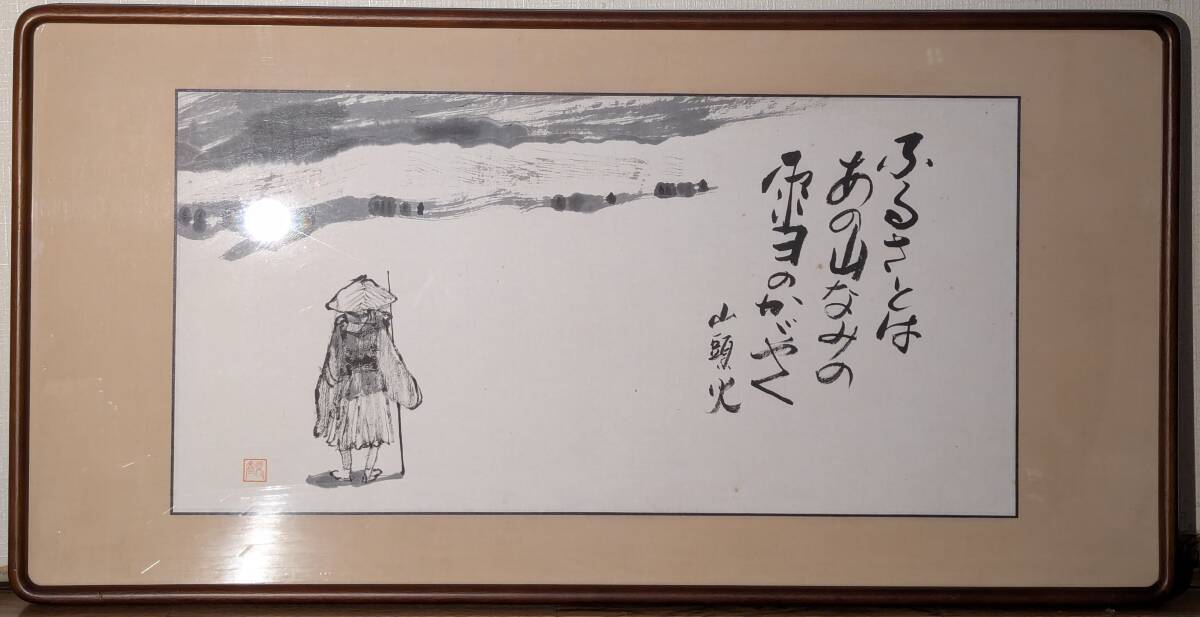 ふるさとは
あの山なみの
雪のかゞやく
山頭火